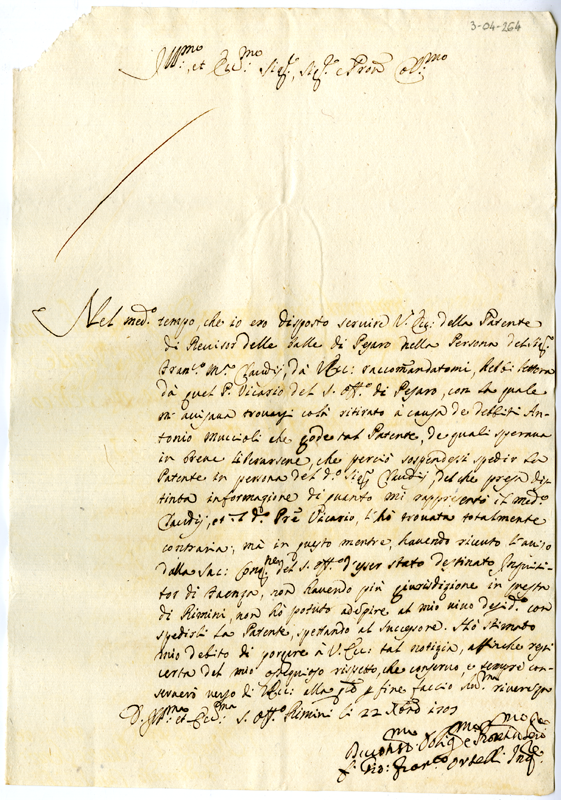 3-04-264
Ill:mo et Ecc:mo Sig:, Sig:e e Pron Col:mo
Nel med:o tempo, che io ero disposto servire V. Ecc: della Patente
di Revisor delle balle di Pesaro nella Persona del Sig:
Fran:co M:a Claudij, da V. Ecc: raccomandatomi, hebbi lettera
da quel P. Vicario del S. Off:o di Pesaro, con la quale
m'avisava trovarsi colà ritirato à causa de debbiti An-
tonio Muccioli che gode tal Patente, de quali sperava
in breve liberarsene, che perciò sospendessi spedir la
Patente in persona del d:o Sig: Claudij, del che presa dis-
tinta informazione di quanto mi rappresentò il med:o
Claudij, et il d:o P're Vicario, l'hò trovata totalmente
contraria; mà in questo mentre, havendo ricevuto l'aviso
dalla Sac: Cong:ne del S. Off:o d'esser stato destinato Inquisi-
tor di Faenza, non havendo più giurisdizione in questa
di Rimini, non hò potuto adempire al mio vivo desid:o con
spedirli la Patente, spettando al Successore. Hò stimato
mio debito di porgere à V. Ecc: tal notizia, affinche resti
certa del mio ossequioso rispetto, che conservo e sempre con-
serverò verso di V. Ecc: alla q'le p fine faccio hum:ma riverenza
D. V. Ill:ma et Ecc:ma S. Off:o Rimini li 22 Xbre 1703
Devotis:mo Oblig:mo Ser:
F. Gio: Fran:co Ortelli Inq:re